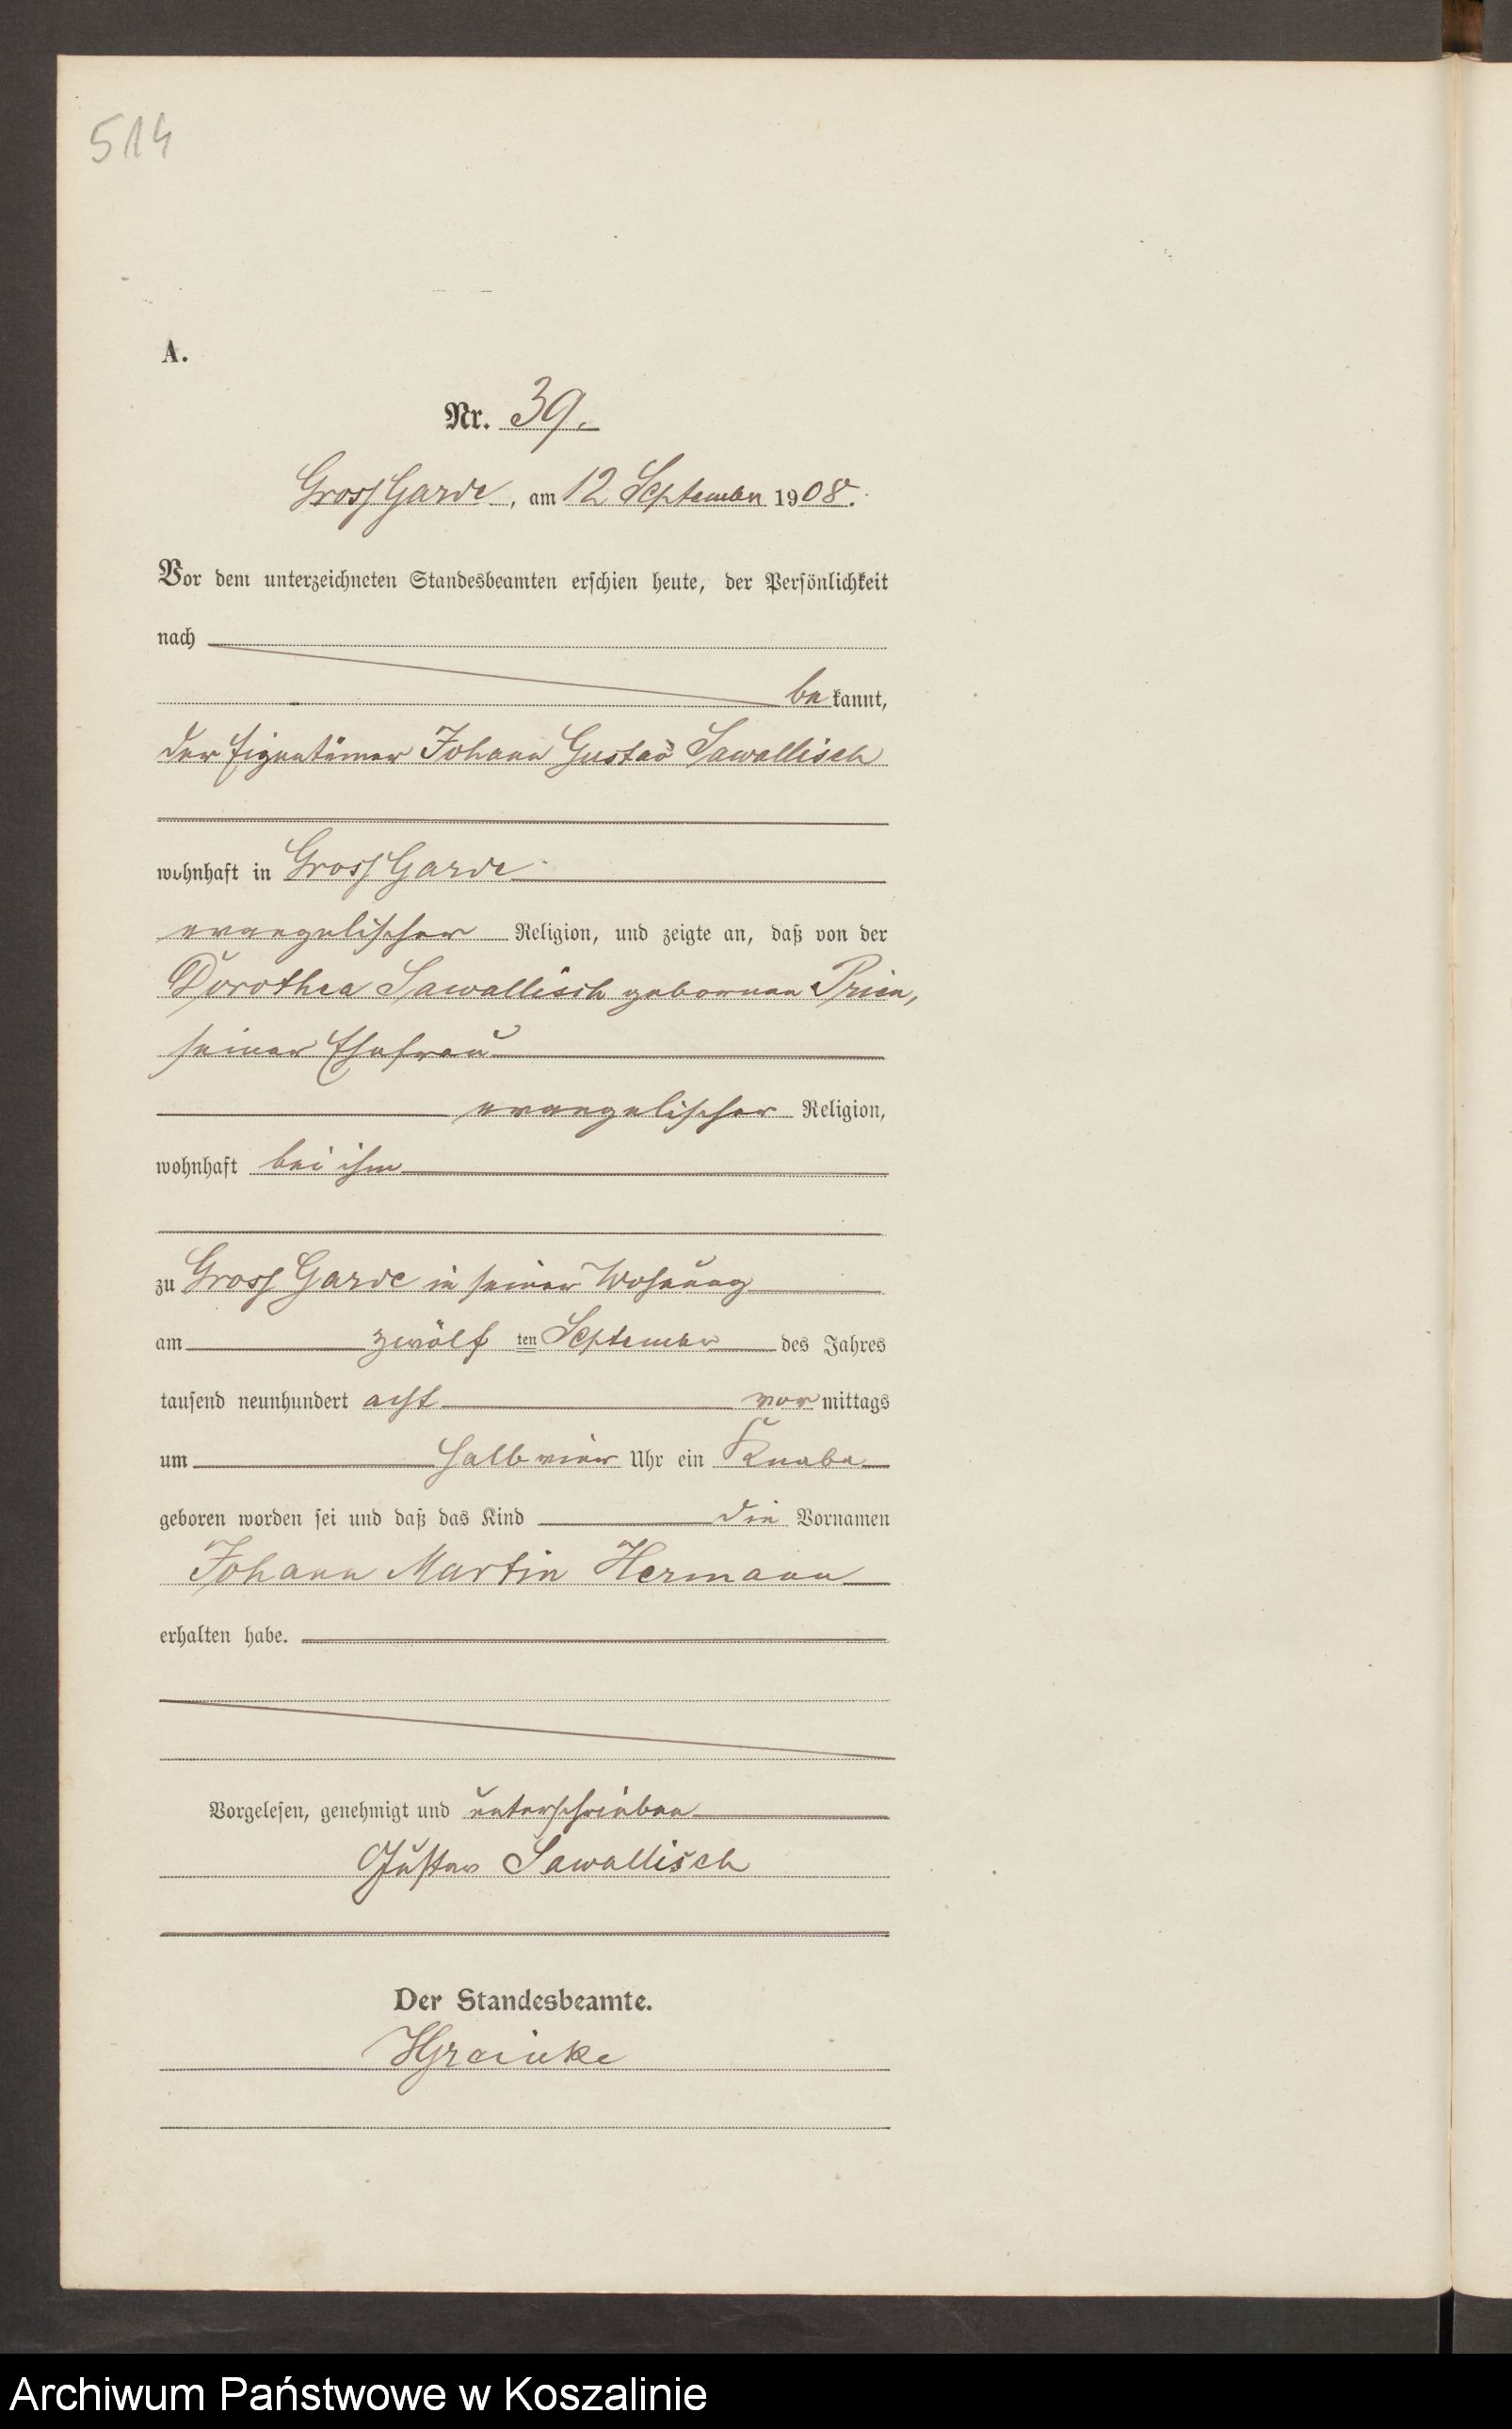 514
A.
Nr. 39.
Gross Garde, am 12 September 1908.
Vor dem unterzeichneten Standesbeamten erschien heute, der Persönlichkeit
nach
be kannt,
der Eigentümer Johann Gustav Sawallisch
wohnhaft in Gross Garde
evangelischer Religion, und zeigte an, daß von der
Dorothea Sawallisch geborenen Prien,
seiner Ehefrau
evangelischer Religion,
wohnhaft bei ihm
zu Gross Garde in seiner Wohnung
am zwölf ten September des Jahres
tausend neunhundert acht vor mittags
um halb vier Uhr ein Knabe
geboren worden sei und daß das Kind die Vornamen
Johann Martin Hermann
erhalten habe.
Vorgelesen, genehmigt und unterschrieben
Gustav Sawallisch
Der Standesbeamte.
Archiwum Państwowe w Koszalinie